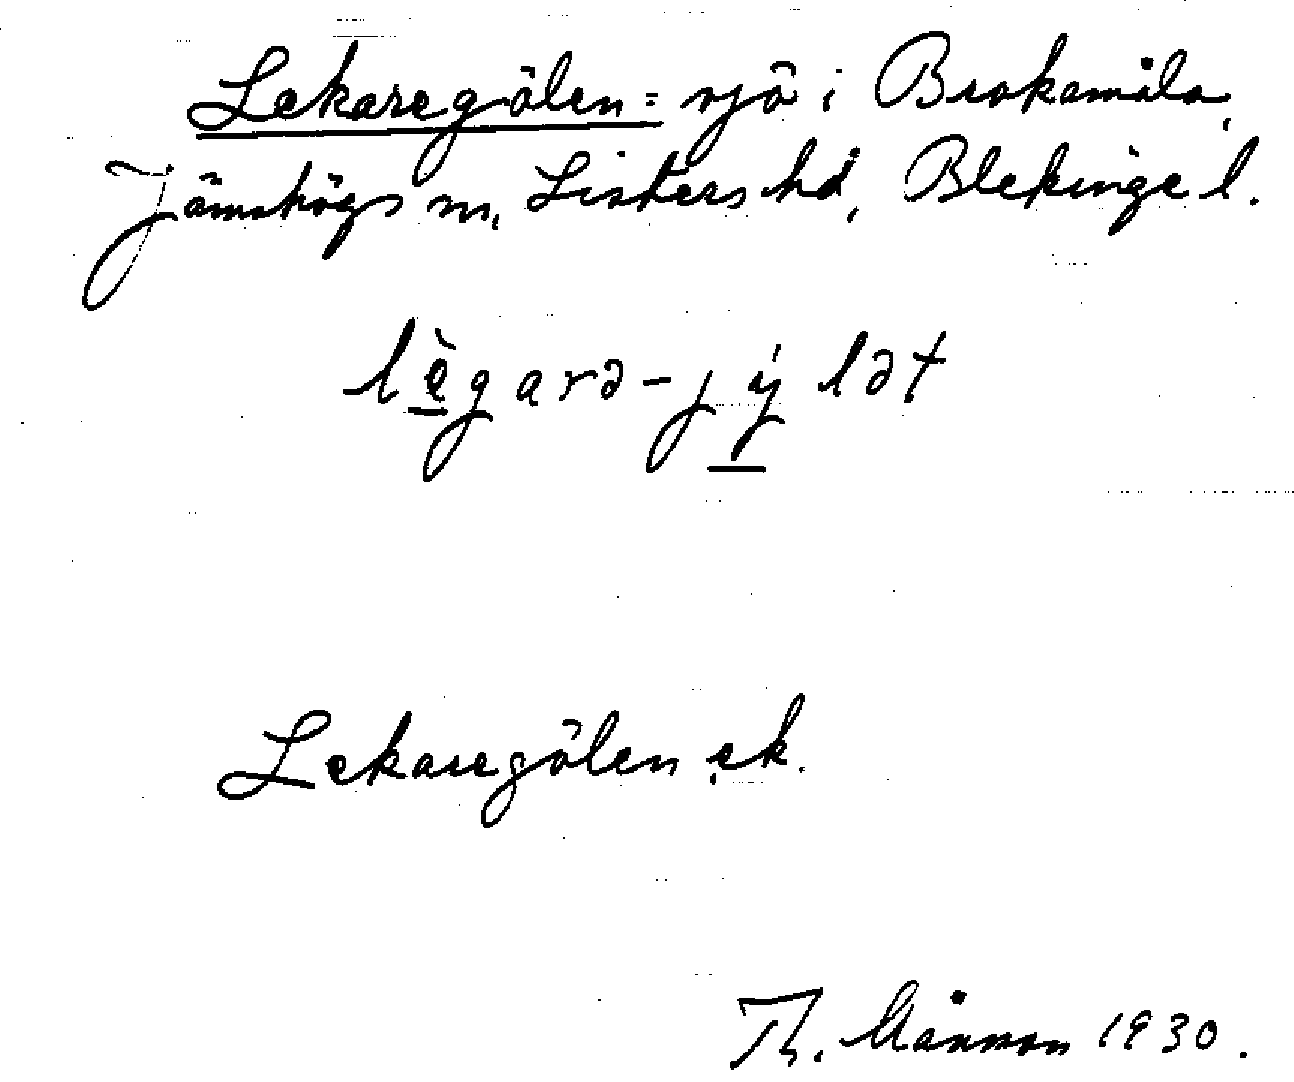 Lekaregölen = sjö i Brokamåla,
Jämshögs sn, Listers hd, Blekinge l.
lègarə-jýlət
Lekaregölen ek.
Th. Månsson 1930.